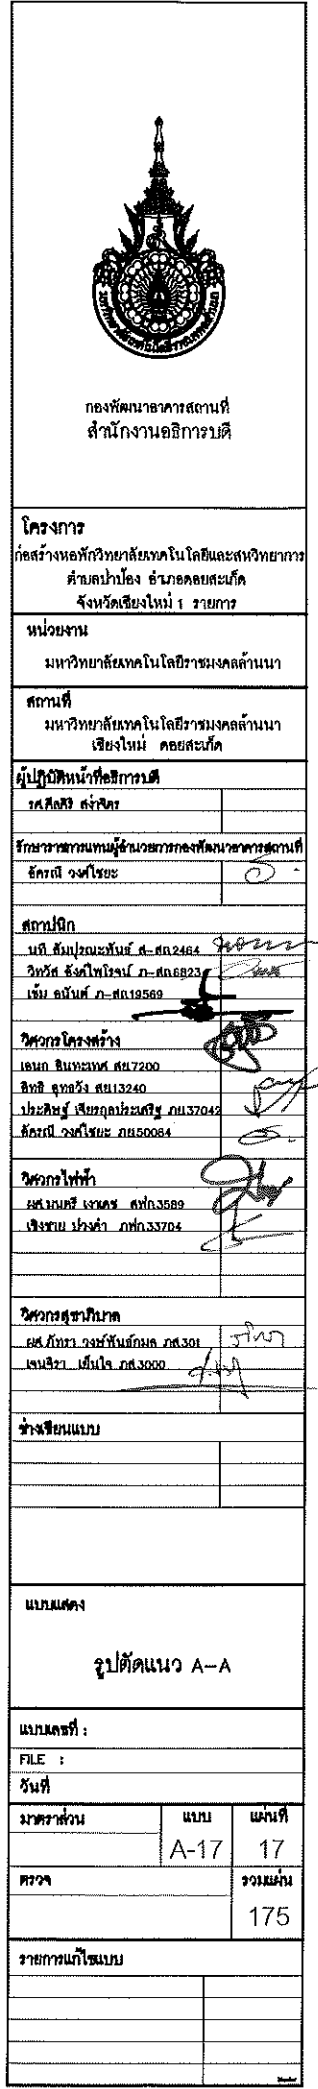 กองพัฒนาอาคารสถานที่
สำนักงานอธิการบดี
โครงการ
ก่อสร้างหอพักวิทยาลัยเทคโนโลยีและสหวิทยาการ
ตำบลป่าป้อง อำเภอดอยสะเก็ด
จังหวัดเชียงใหม่ 1 รายการ
หน่วยงาน
มหาวิทยาลัยเทคโนโลยีราชมงคลล้านนา
สถานที่
มหาวิทยาลัยเทคโนโลยีราชมงคลล้านนา
เชียงใหม่ ดอยสะเก็ด
ผู้ปฏิบัติหน้าที่อธิการบดี
รศ.ศีลศิริ สง่าจิตร
รักษาราชการแทนผู้อำนวยการกองพัฒนาอาคารสถานที่
อัครณี วงศ์ไชยะ
สถาปนิก
นที สัมปุรณะพันธ์ ส-สถ2464
วิทวัส อังค์ไพโรจน์ ภ-สถ6823
เข้ม อนันต์ ภ-สถ19569
วิศวกรโครงสร้าง
เอนก สินทะเทศ สย7200
สิทธิ อุทธวัง สย13240
ประดิษฐ์ เจียรกุลประเสริฐ ภย37042
อัครณี วงศ์ไชยะ ภย50064
วิศวกรไฟฟ้า
ผศ.มนตรี เงาเดช สฟก3589
เชิงชาย ปวงคำ ภฟก33704
วิศวกรสุขาภิบาล
ผศ.ภัทรา วงษ์พันธ์กมล ภส.301
เจนจิรา เย็นใจ ภส.3000
ช่างเขียนแบบ
แบบแสดง
รูปตัดแนว A-A
แบบเลขที่ :
FILE :
วันที่
มาตราส่วน แบบ แผ่นที่
A-17 17
ตรวจ รวมแผ่น
175
รายการแก้ไขแบบ